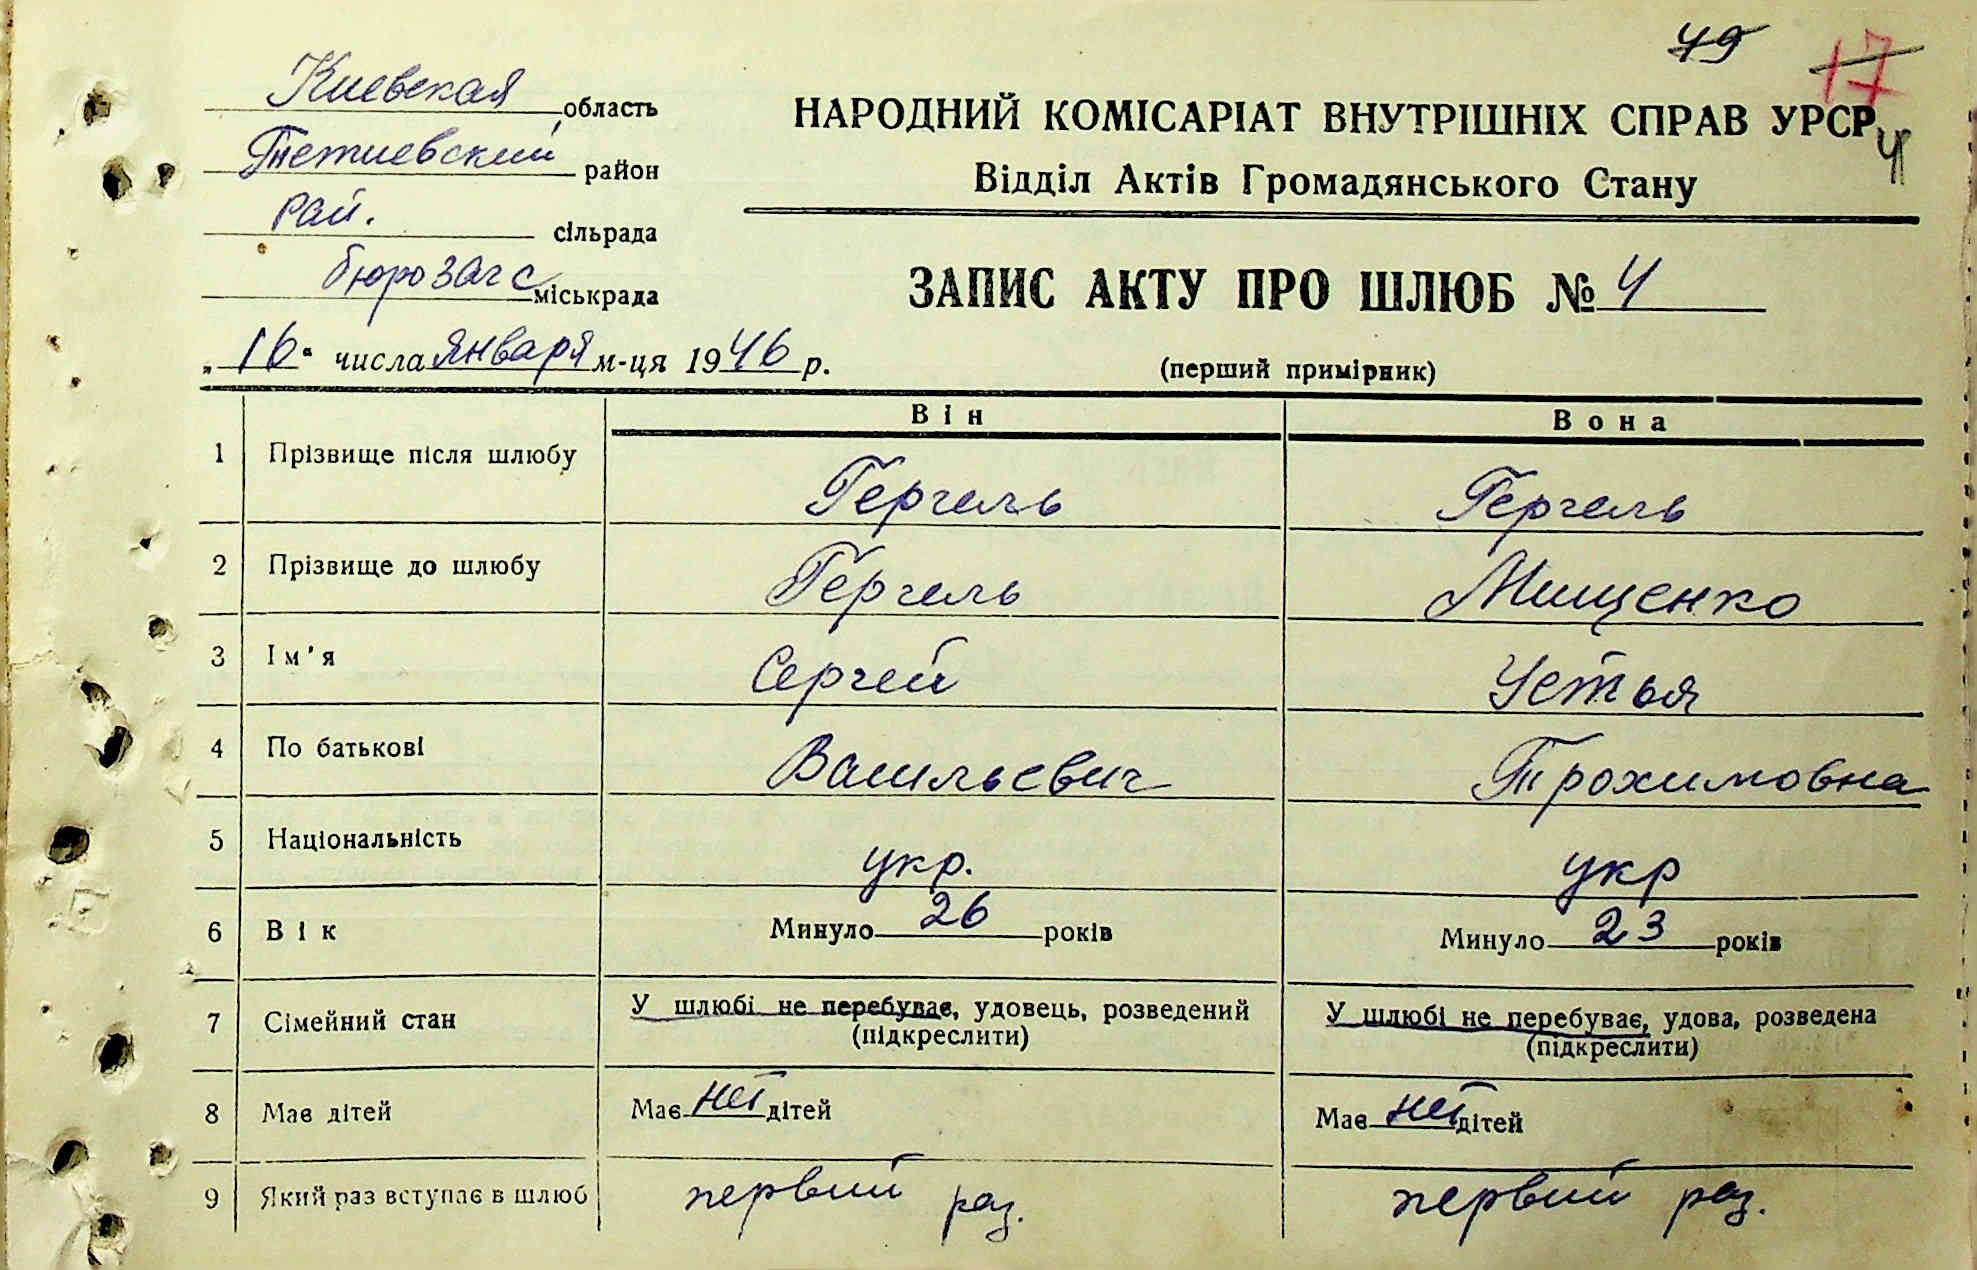 49 17
Киевская область
Тетиевский район
рай. сільрада
бюро загс міськрада
„16“ числа января м-ця 1946 р.
НАРОДНИЙ КОМІСАРІАТ ВНУТРІШНІХ СПРАВ УРСР
4
Відділ Актів Громадянського Стану
ЗАПИС АКТУ ПРО ШЛЮБ № 4
(перший примірник)
Він Вона
1 Прізвище після шлюбу Гергель Гергель
2 Прізвище до шлюбу Гергель Мищенко
3 Ім'я Сергей Устья
4 По батькові Васильевич Трохимовна
5 Національність укр. укр
6 Вік Минуло 26 років Минуло 23 років
7 Сімейний стан У шлюбі не перебуває, удовець, розведений У шлюбі не перебуває, удова, розведена
(підкреслити) (підкреслити)
8 Має дітей Має нет дітей Має нет дітей
9 Який раз вступає в шлюб первий раз. первий раз.